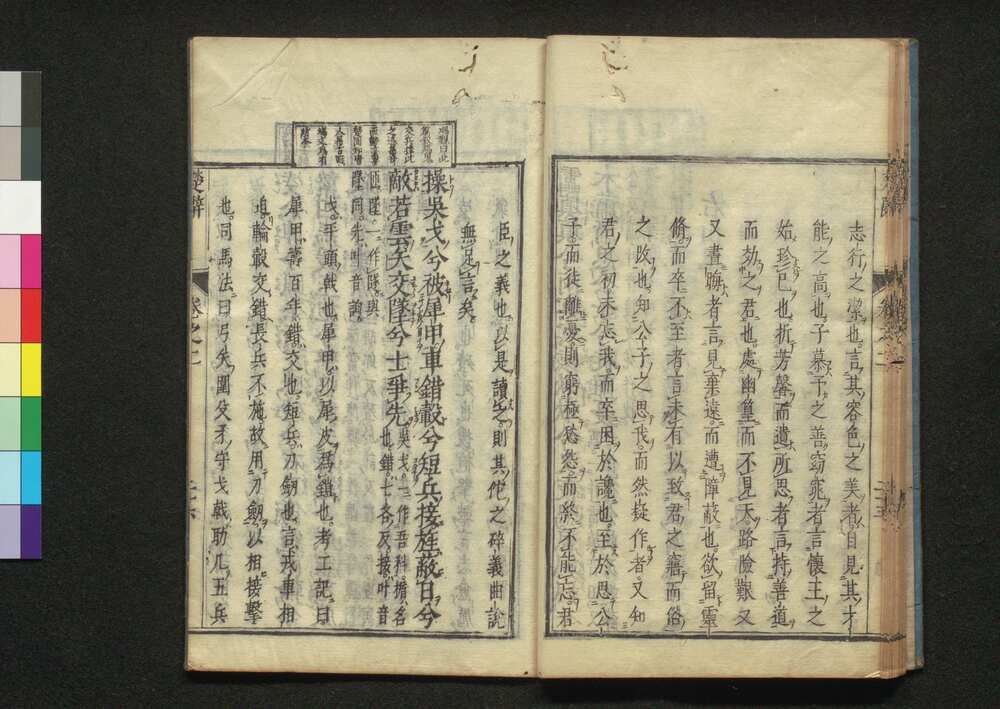 志行之潔也言其容色之美者自見其才
能之高也子慕予之善窈窕者言懷王之
始珍已也折芳馨而遺所思者言持善道
而効之君也處幽篁而不見天路險艱又
又晝晦者言見棄遠而遭障蔽也欲留靈
脩而卒不至者言未有以致君之寤而俗
之改也知公子之思我而然疑作者又知
君之初未忘我而卒困於讒也至於思公
子而徒離憂則窮極愁怨而終不能忘君
臣之義也以是讀之則其佗之碎義曲說
無足言矣
操吳戈兮被犀甲車錯轂兮短兵接旌蔽日兮
敵若雲矢交墜兮士爭先
吳戈一作吾科楯名
也錯七各反接叶音
匝墜一作隧與
墜同先叶音詢
戈平頭戟也犀甲以犀皮爲鎧也考工記曰
犀甲壽百年錯交也短兵刀劒也言戎車相
迫輪轂交錯長兵不施故用刀劒以相接擊
也司馬法曰弓矢圍殳矛守戈戟助凡五兵
楚辭
卷之二